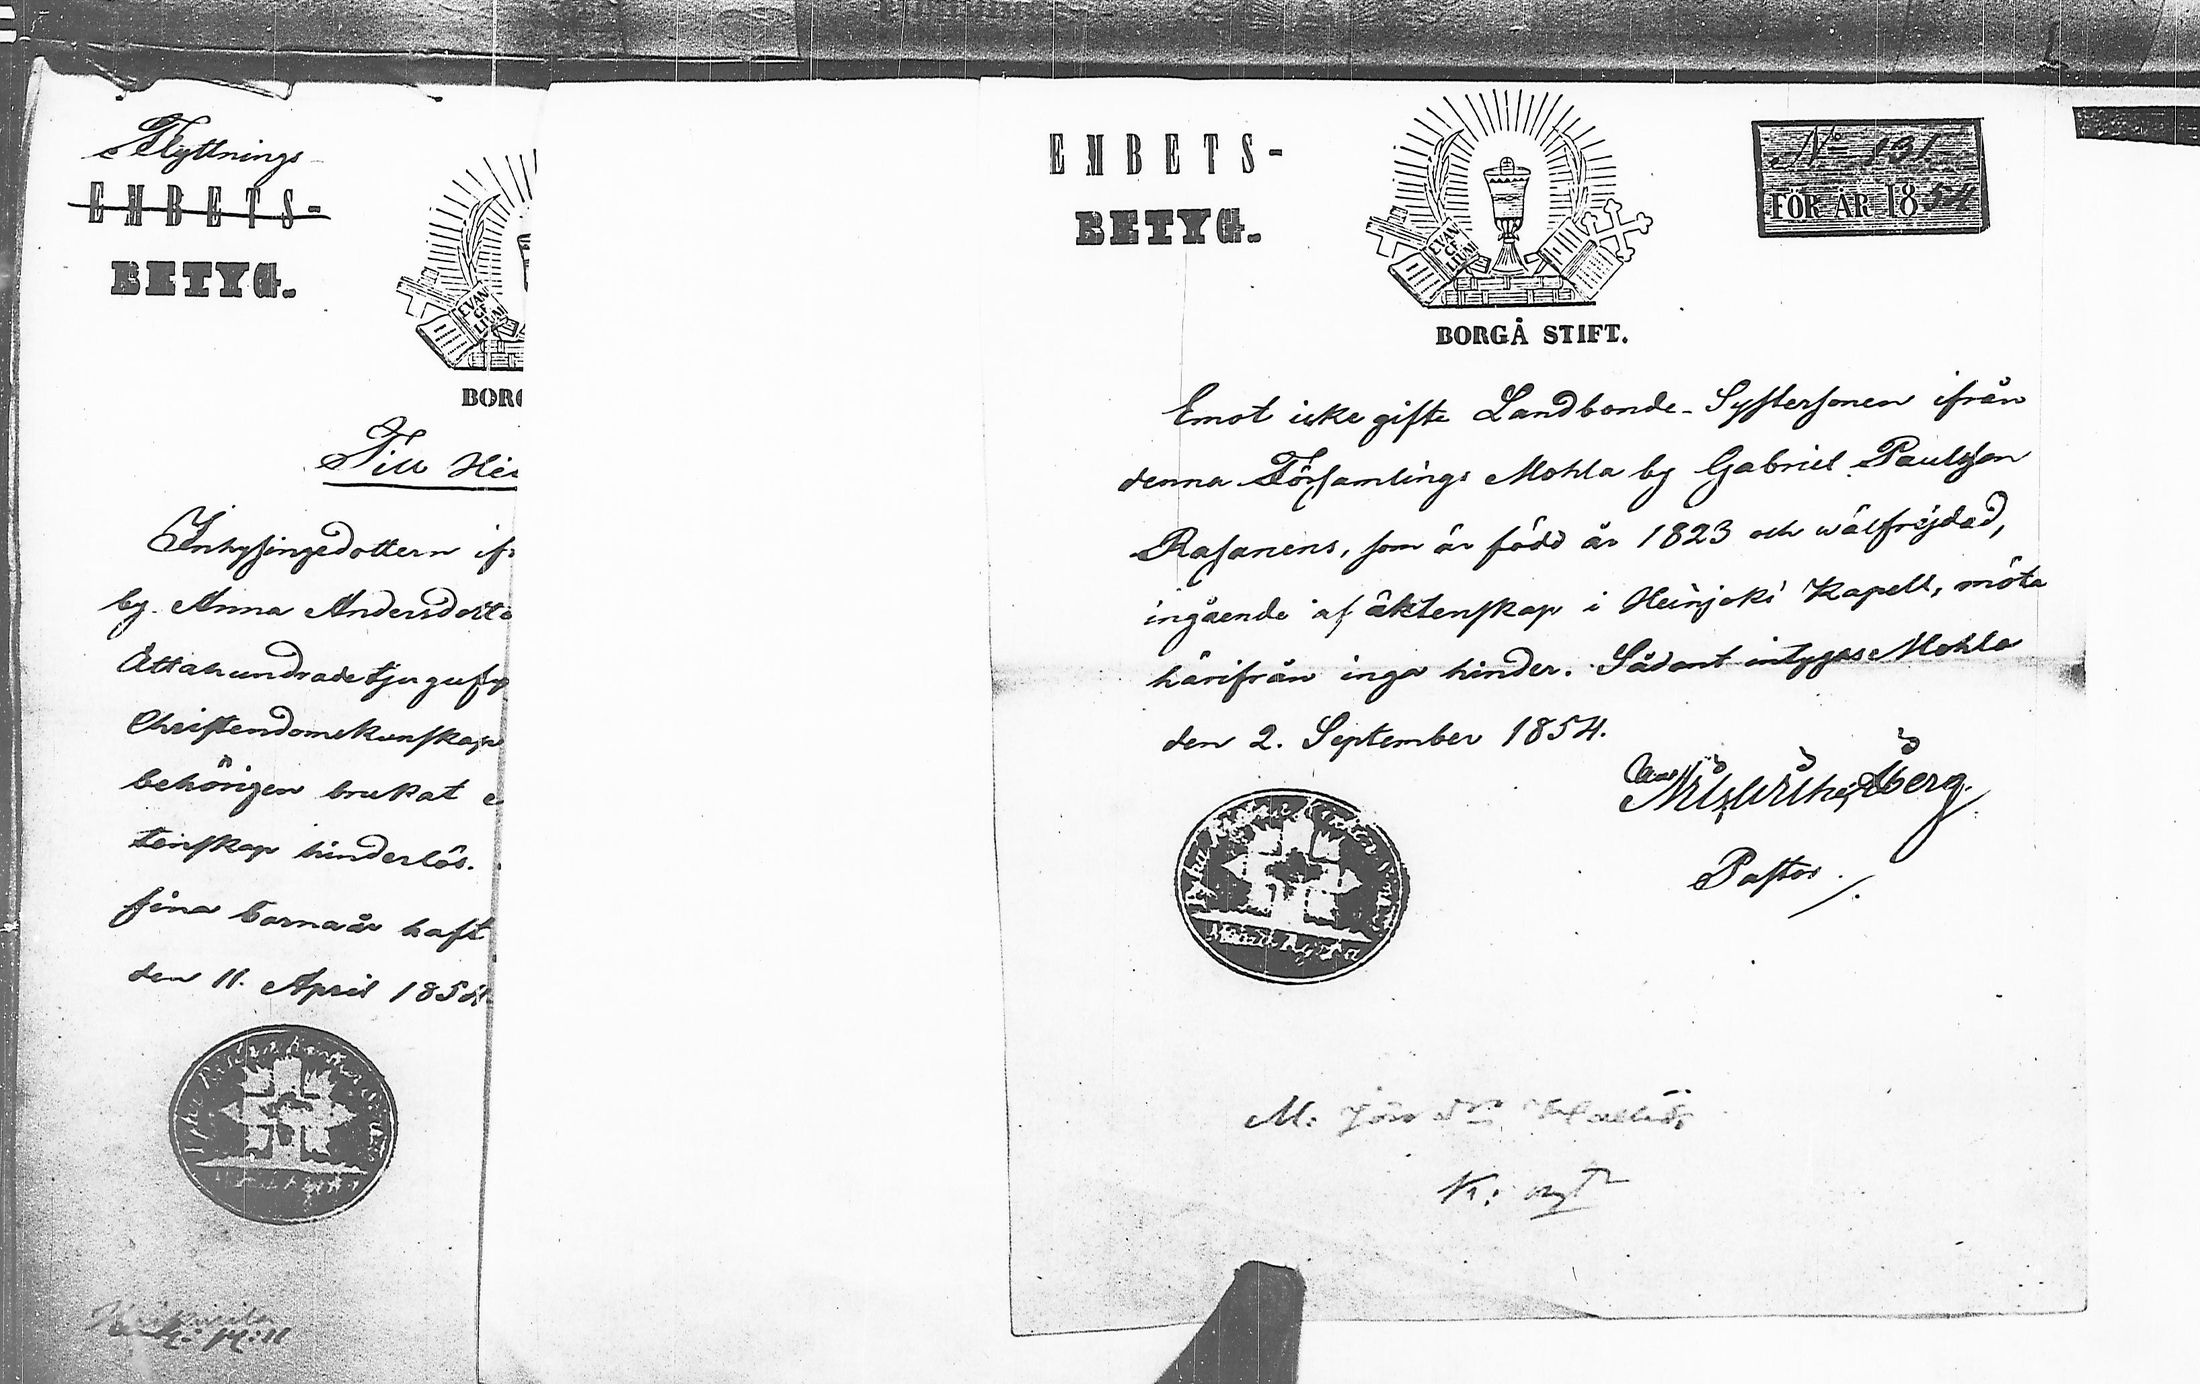 Flyttnings-
EMBETS-
BETYG.
EVAN
GE
LIUM
BORG
Till Hei
Inhysingedottern if
by Anna Andersdotte
Åttahundradetjugufy
Christendomskunskap
behörigen brukat
tenskap hinderlös.
sina barnaår haft
den 11. April 1854.
EMBETS-
BETYG.
EVAN
GE
LIUM
BORGÅ STIFT.
No 131.
FÖR ÅR 1854
Emot icke gifte Landbonde-Systersonen ifrån
denna Församlings Mohla by Gabriel Paulsson
Rasanens, som är född år 1823 och wälfrejdad,
ingående af äktenskap i Heinjoki Kapell, möta
härifrån inga hinder. Sådant intygas: Mohla
den 2. September 1854.
Åberg.
Pastor.
M:
K: